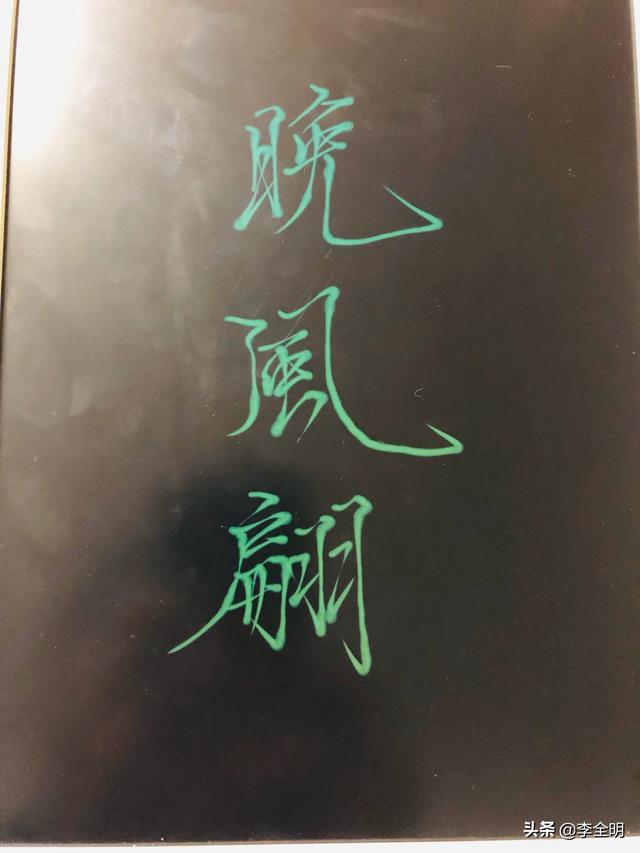 晚
風
翩
头条 @李全明